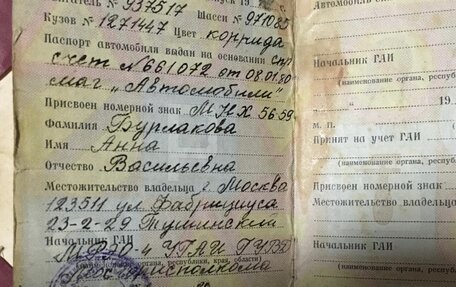 Двигатель № 937517 Шасси № 971085
Кузов № 1271447 Цвет коррида
Паспорт автомобиля выдан на основании сп/
счет № 661072 от 08.01.80
маг „Автомобили"
Присвоен номерной знак МНХ 56-59
Фамилия Бурлакова
Имя Анна
Отчество Васильевна
Местожительство владельца г. Москва
123511 ул. Фабрициуса
23-2-29 Тушинский
Начальник ГАИ
МРЭО-4 УГАИ ГУВД
Мосгорисполкома
(наименование органа, республики, края, области)
Автомобиль
на основании
Начальник ГАИ
(наименование органа, республ
" 19
М. П.
Принят на учет ГАИ
(наименование органа
Присвоен номерной знак
Местожительство владельца
Начальник ГАИ
(наименование органа, республи